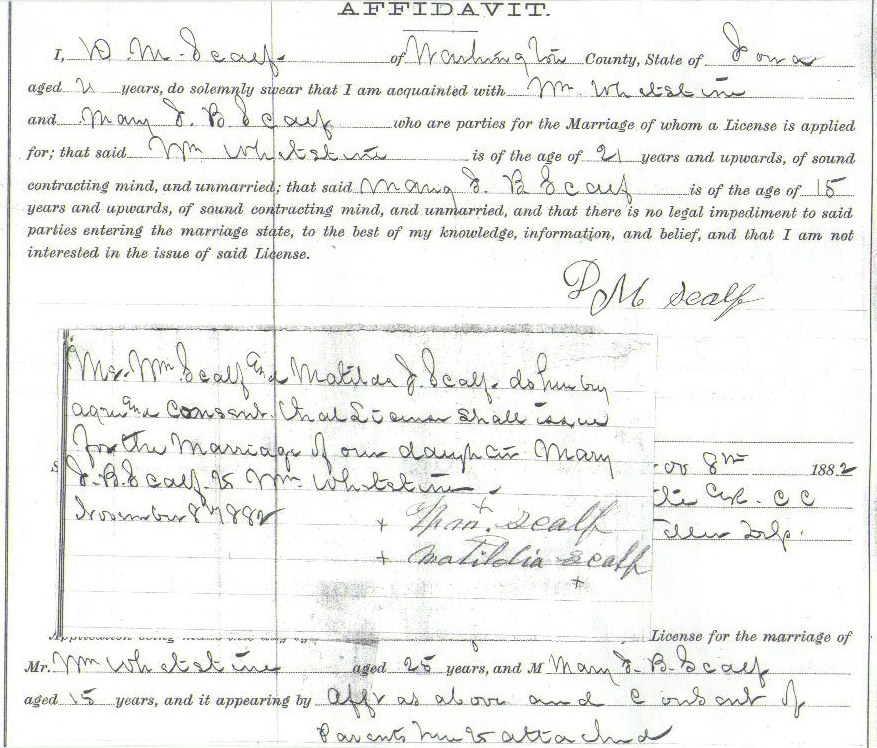 AFFIDAVIT.
I, D. M. Scalf of Washington County, State of Iowa
aged 21 years, do solemnly swear that I am acquainted with Wm. Whetstine
and Mary J. B. Scalf who are parties for the Marriage of whom a License is applied
for; that said Wm Whetstine is of the age of 21 years and upwards, of sound
contracting mind, and unmarried; that said Mary J. B. Scalf is of the age of 15
years and upwards, of sound contracting mind, and unmarried, and that there is no legal impediment to said
parties entering the marriage state, to the best of my knowledge, information, and belief, and that I am not
interested in the issue of said License.
D M Scalf
Wm Scalf and Matilda J. Scalf do hereby
agree and Consent that License shall issue
for the Marriage of our daughter Mary
J. B. Scalf to Wm. Whetstine.
November 8th 1882
Wm. Scalf
Matildia Scalf
8th 1882
C C
License for the marriage of
Mr. Wm Whetstine aged 25 years, and M Mary J. B. Scalf
aged 15 years, and it appearing by Affv as above and Consent of
Parents hereto attached